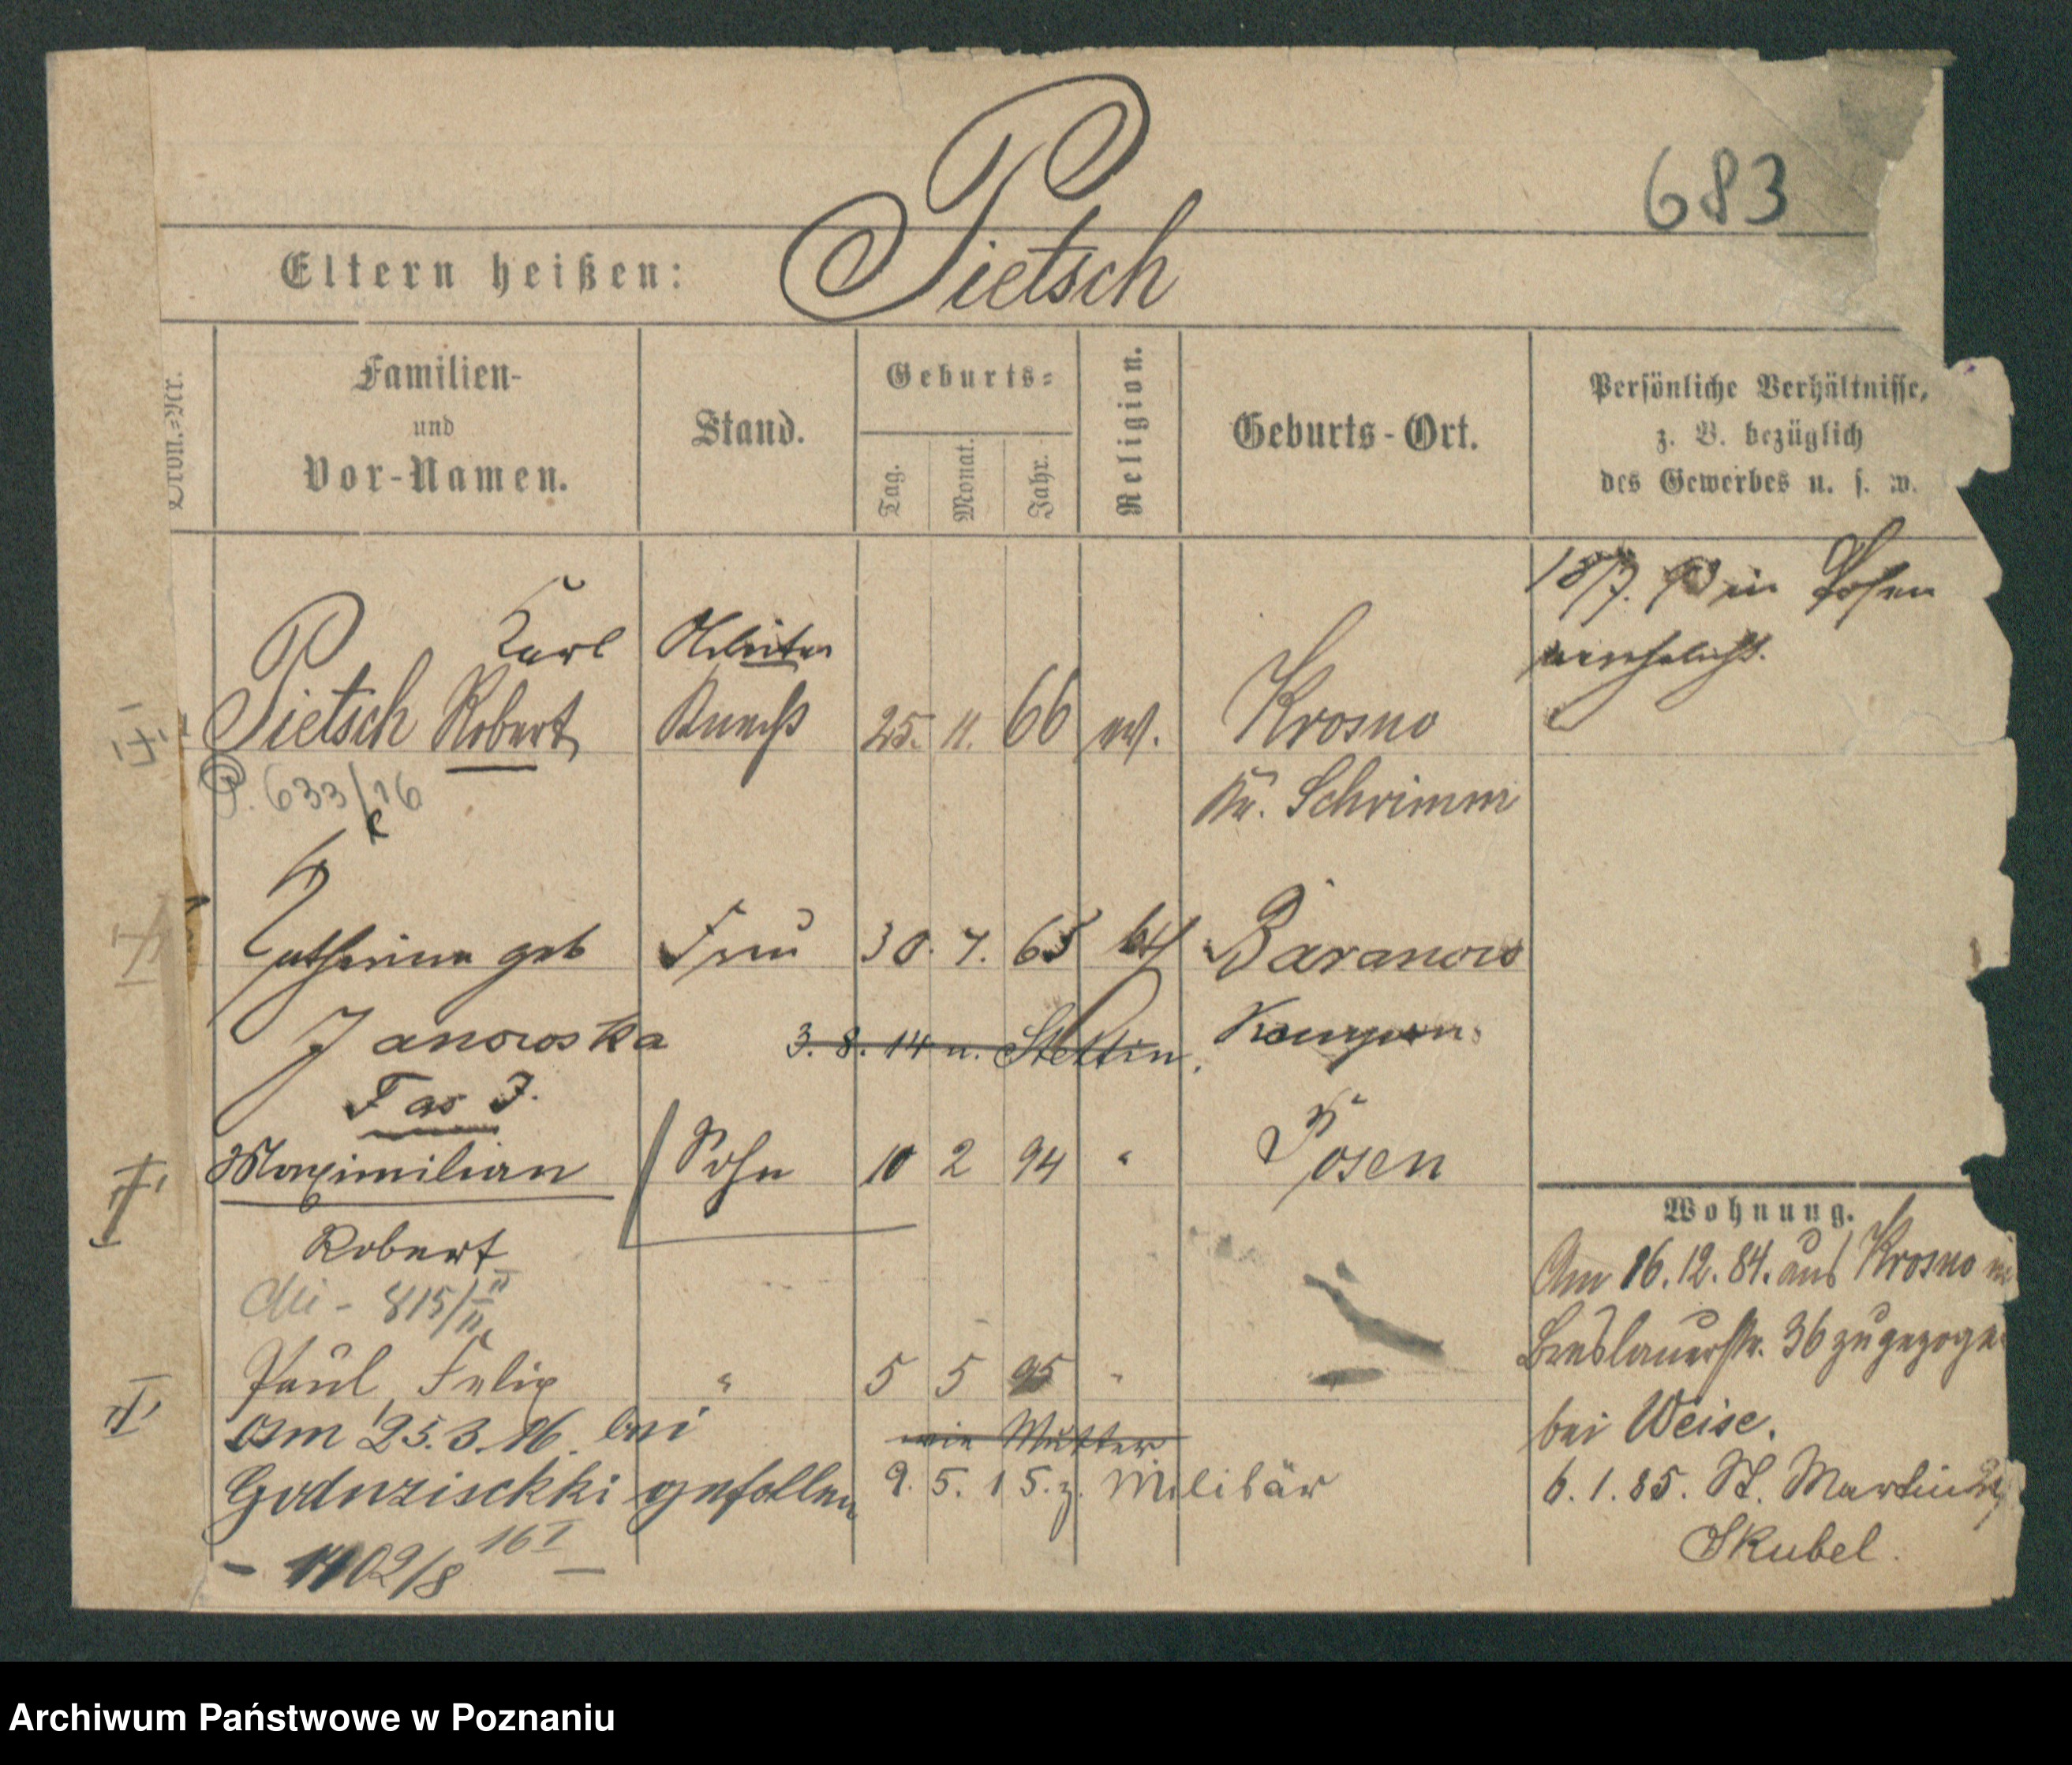 683
Eltern heißen: Pietsch
Familien- und Vor-Namen.
Stand.
Geburts-
Tag. Monat. Jahr.
Religion.
Geburts-Ort.
Persönliche Verhältnisse,
z. B. bezüglich
des Gewerbes u. s. w.
18/7. 93 in Posen
verehelicht.
Karl Arbeiter
Pietsch Robert Knecht 25. 11. 66 ev. Krosno
P. 633/16
Kr. Schrimm
Katharina geb Frau 30. 7. 65 kth Baranow
Janowska 3. 8. 14 n. Stettin. Kempen.
F as J.
Maximilian Sohn 10 2 94 " Posen
Robert
815/II
Paul Felix " 5 5 95 "
am 25. 3. 16. bei wie Mutter
Goduzischki gefallen 9. 5. 15. z. Militär
- 1102/8 16 I -
Wohnung.
Am 16. 12. 84. aus Krosno
Breslauerstr. 36 zugezogen
bei Weise.
6. 1. 85. St. Martin
Skubel.
Archiwum Państwowe w Poznaniu